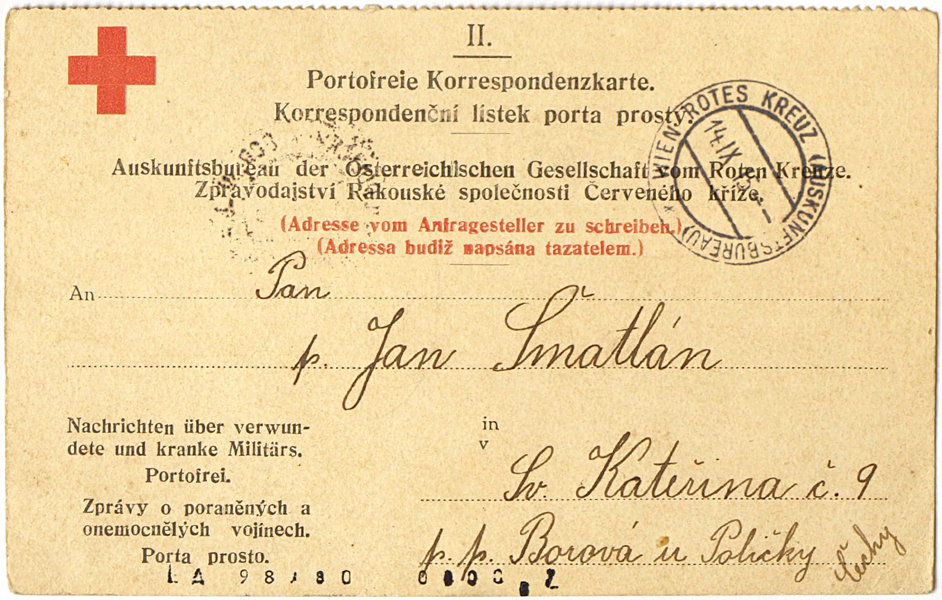 II.
Portofreie Korrespondenzkarte.
Korrespondenční lístek porta prostý.
WIEN ROTES KREUZ (AUSKUNFTSBUREAU)
14.IX
Auskunftsbureau der Österreichischen Gesellschaft vom Roten Kreuze.
Zpravodajství Rakouské společnosti Červeného kříže.
(Adresse vom Anfragesteller zu schreiben.)
(Adressa budiž napsána tazatelem.)
An Pan
p. Jan Šmatlán
Nachrichten über verwun-
dete und kranke Militärs.
Portofrei.
Zprávy o poraněných a
onemocnělých vojínech.
Porta prosto.
in
v
Sv. Kateřina č. 9
p. p. Borová u Poličky
Čechy